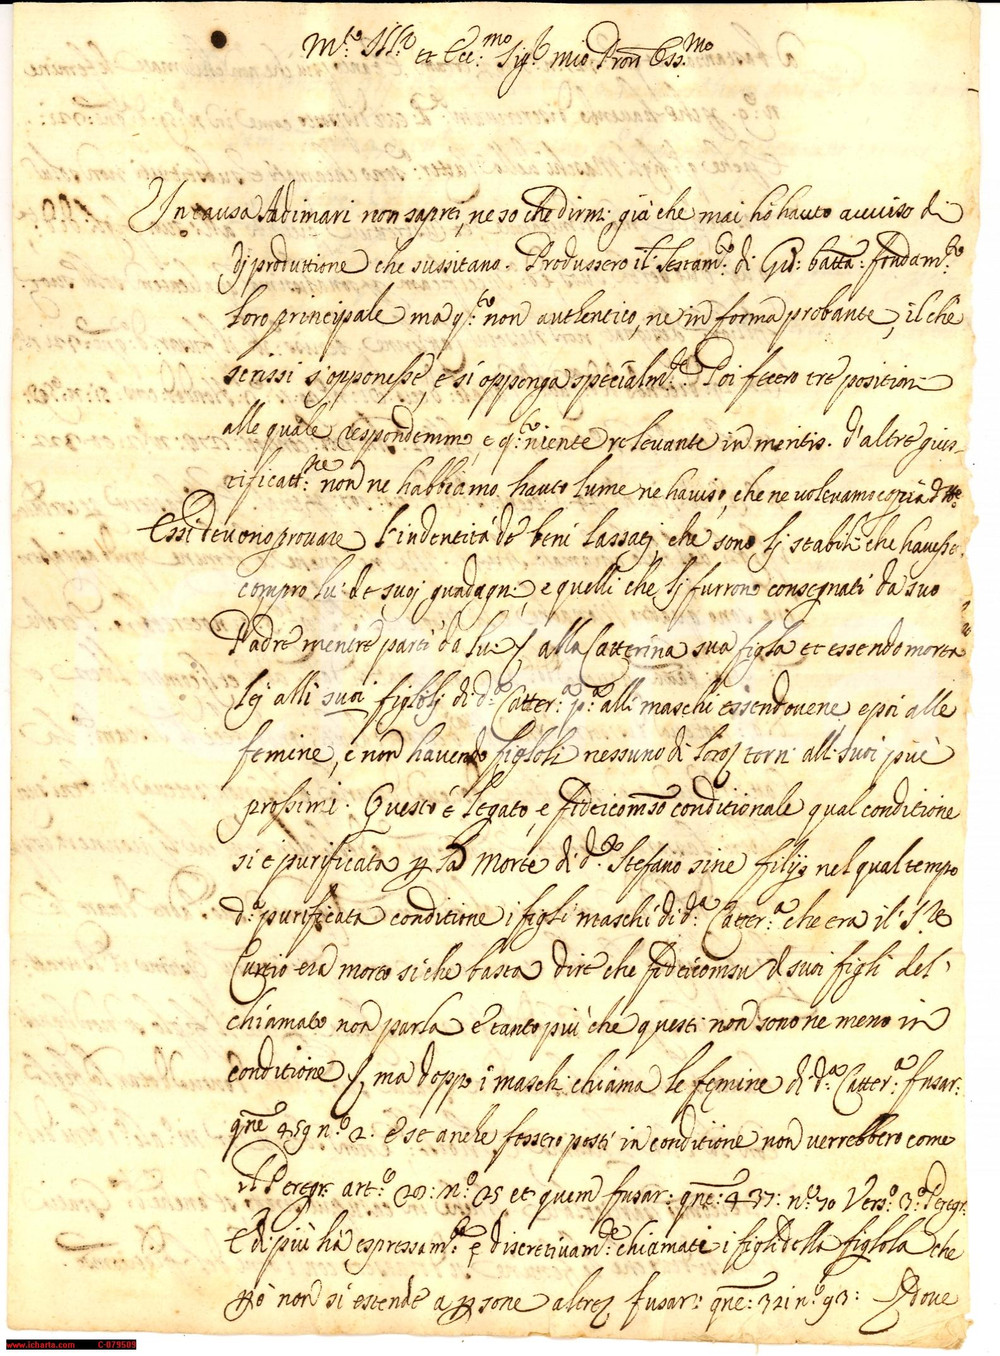 M.to Ill.re et Ecc.mo Sig.r mio Pron Oss.mo
In causa Adimari non saprei, ne so che dirmi già che mai hò hauto auuiso di
di produttione che sussitano. Produssero il Testam.to di Gio: batta: fondam.to
loro principale ma q.to non authentico, ne in forma probante, il che
scrissi s'opponesse, e si opponga specialm.te Poi fecero tre positioni
alle quale respondemmo, e q.to niente relevante in meritis. d'altre gius-
tificatt.ne non ne habbiamo hauto lume ne haviso, che ne volevamo copia
Essi devono provare l'indentità de beni lassati, che sono li stabili che havesse
compro lui de suoi guadagni, e quelli che li furrono consegnati da suo
Padre mentre parti da lui alla Catterina sua figla et essendo morta
lei alli suoi figloli di d.a Catter.a p.a alli maschi essendovene, e poi alle
femine, e non havendo figloli nessuno di loro torni alli suoi più
prossimi. Questo è legato, e fideicomso conditionale qual conditione
si è purificata p la morte di d.o Stefano sine filijs nel qual tempo
d.a purificata conditione i figli maschi di d.a Catter.a che era il S.r
Curtio era morto si che basta dire che fideicomsu d suoi figli del
chiamato non parla e tanto più che questi non sono ne meno in
conditione, ma doppo i maschi chiama le femine di d.a Catter.a fusar:
qne 459 n.o 2. e se anche fossero posti in conditione non verrebbero come
il Peregr. art.o 20: n.o 25 et quem fusar: qne: 437: n.o 70 Vers.o 3.o Peregr.
E di più hà espressam.te e discretivam.te chiamati i figli della figlola che
pò non si estende a psone altre, fusar: qne: 321 n.o 93: dove
www.icharta.com C-079509